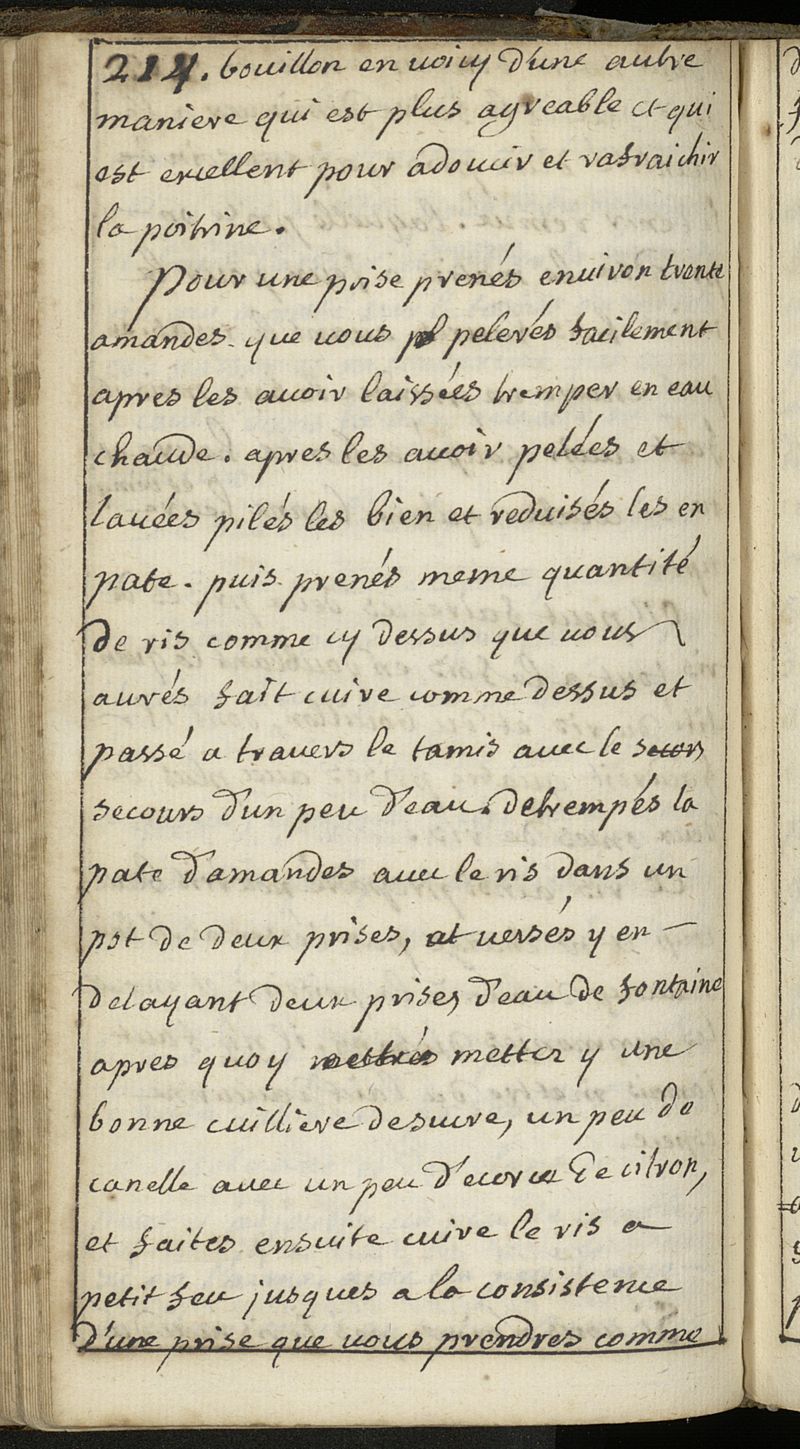 214. bouillon en voicy d'une autre
maniere qui est plus agreable et qui
est excellent pour adoucir et rafraichir
la poitrine.
Pour une prise prenés environ trente
amandes que vous pl pelerés facilement
apres les avoir laissées tremper en eau
chaude. apres les avoir pelées et
lavées pilés les bien et reduisés les en
pate. puis prenés meme quantité
de ris comme cy dessus que vous
aurés fait cuire comme dessus et
passé a travers le tamis avec le secors
secours d'un peu d'eau. detrempés la
pate d'amandes avec le ris dans un
pot de deux prises, et versés y en
delayant deux prises d'eau de fontaine
apres quoy mettrés metter y une
bonne cuilliere de sucre, un peu de
canelle avec un peu d'ecorce de citron,
et faites ensuite cuire le ris a
petit feu jusques a la consistence
d'une prise que vous prendres comme